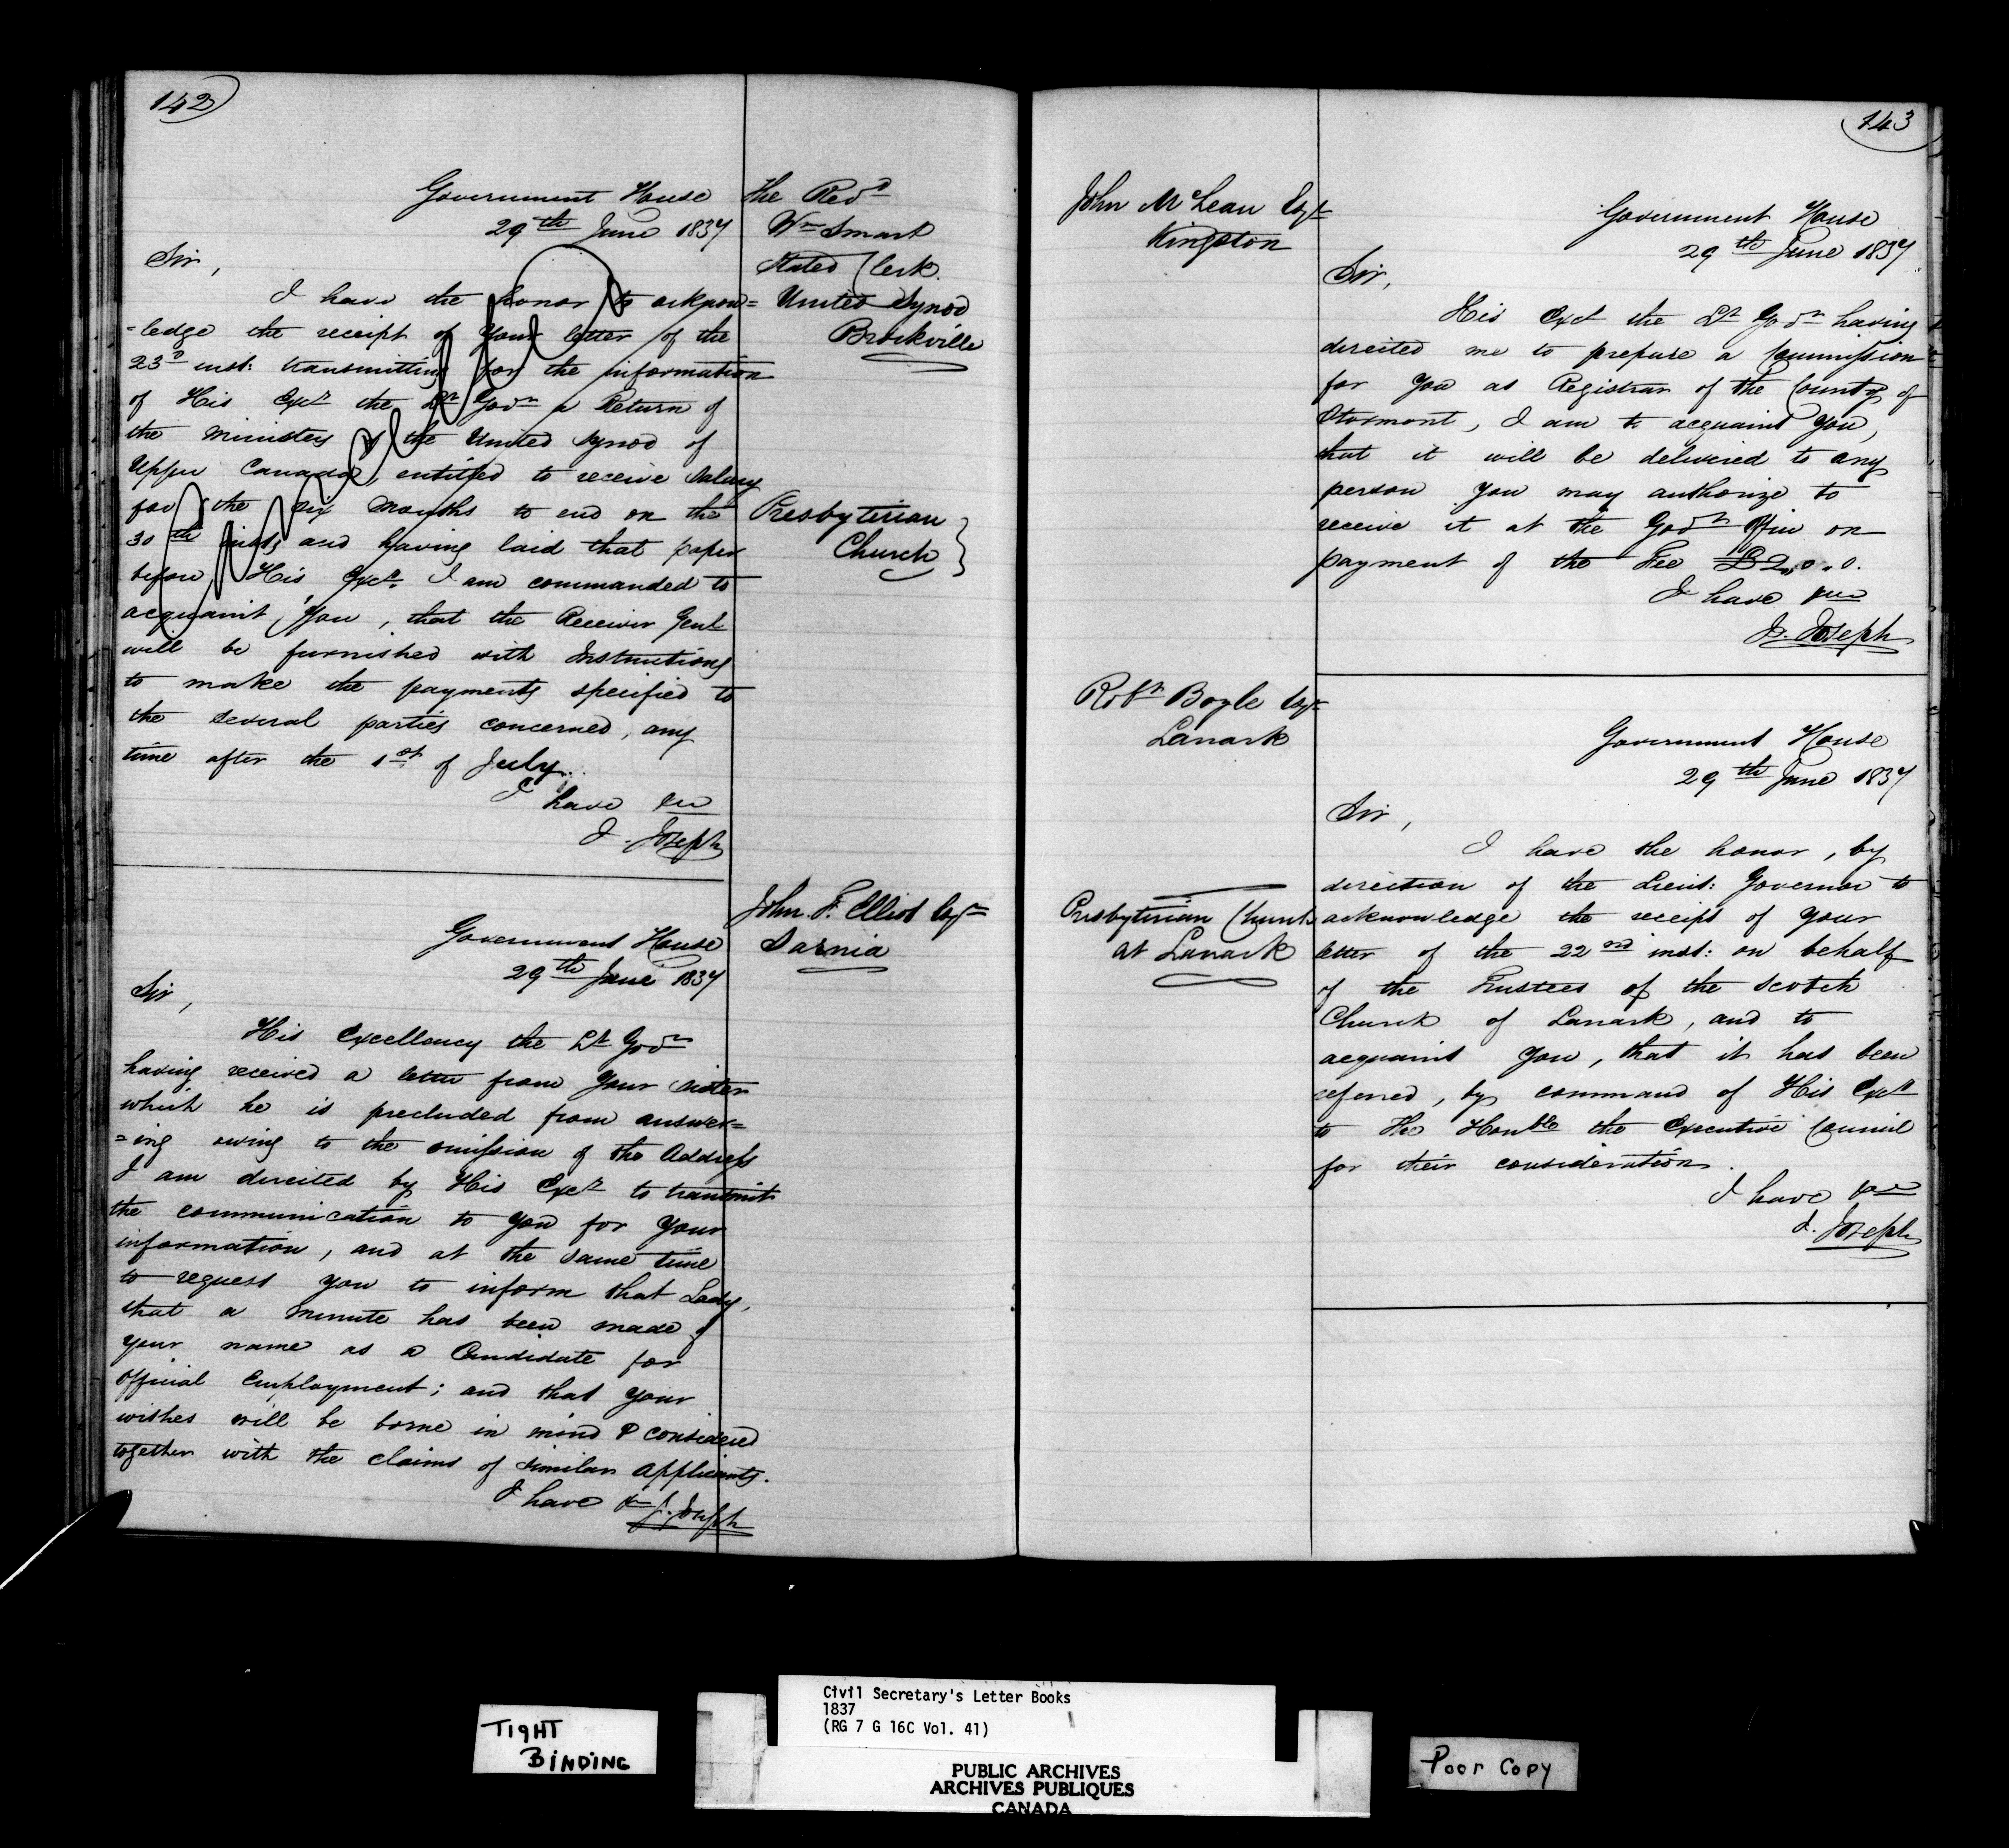 142
Government House
29th June 1837
Sir,
I have the honor to acknow=
=ledge the receipt of your letter of the
23d inst: transmitting for the information
of His Excy the Lt Govr a Return of
the Ministers of the United Synod of
Upper Canada, entitled to receive Salary
for the six Months to end on the
30th inst; and having laid that paper
before His Excy I am commanded to
acquaint You, that the Receiver Genl
will be furnished with Instructions
to make the payments specified to
the several parties concerned, any
time after the 1st of July.
I have &c
J. Joseph
The Revd
Wm Smart
Stated Clerk.
United Synod
Brockville
Presbyterian
Church
Government House
29th June 1837
Sir,
His Excellency the Lt Govr
having received a letter from your sister
which he is precluded from answer=
=ing owing to the omission of the Address
I am directed by His Excy to transmit
the communication to you for your
information, and at the same time
to request you to inform that Lady,
that a Minute has been made of
your name as a Candidate for
Official Employment; and that your
wishes will be borne in mind & considered
together with the claims of similar applicants.
I have &c J. Joseph
John F. Elliot Esqr
Sarnia
143
John McLean Esqr
Kingston
Government House
29th June 1837.
Sir,
His Excy the Lt Govr having
directed me to prepare a Commission
for You as Registrar of the County of
Stormont, I am to acquaint You,
that it will be delivered to any
person you may authorize to
receive it at the Govt Office on
payment of the Fee £2,,0.0.
I have &c
J. Joseph
Robt Boyle Esqr
Lanark
Presbyterian Church
at Lanark
Government House
29th June 1837
Sir,
I have the honor, by
direction of the Lieut: Governor to
acknowledge the receipt of your
letter of the 22nd inst: on behalf
of the Trustees of the Scotch
Church of Lanark, and to
acquaint You, that it has been
referred, by command of His Excy
to The Honble the Executive Council
for their consideration.
I have &c
J. Joseph
TIGHT
BINDING
Civil Secretary's Letter Books
1837
(RG 7 G 16C Vol. 41)
PUBLIC ARCHIVES
ARCHIVES PUBLIQUES
CANADA
Poor Copy